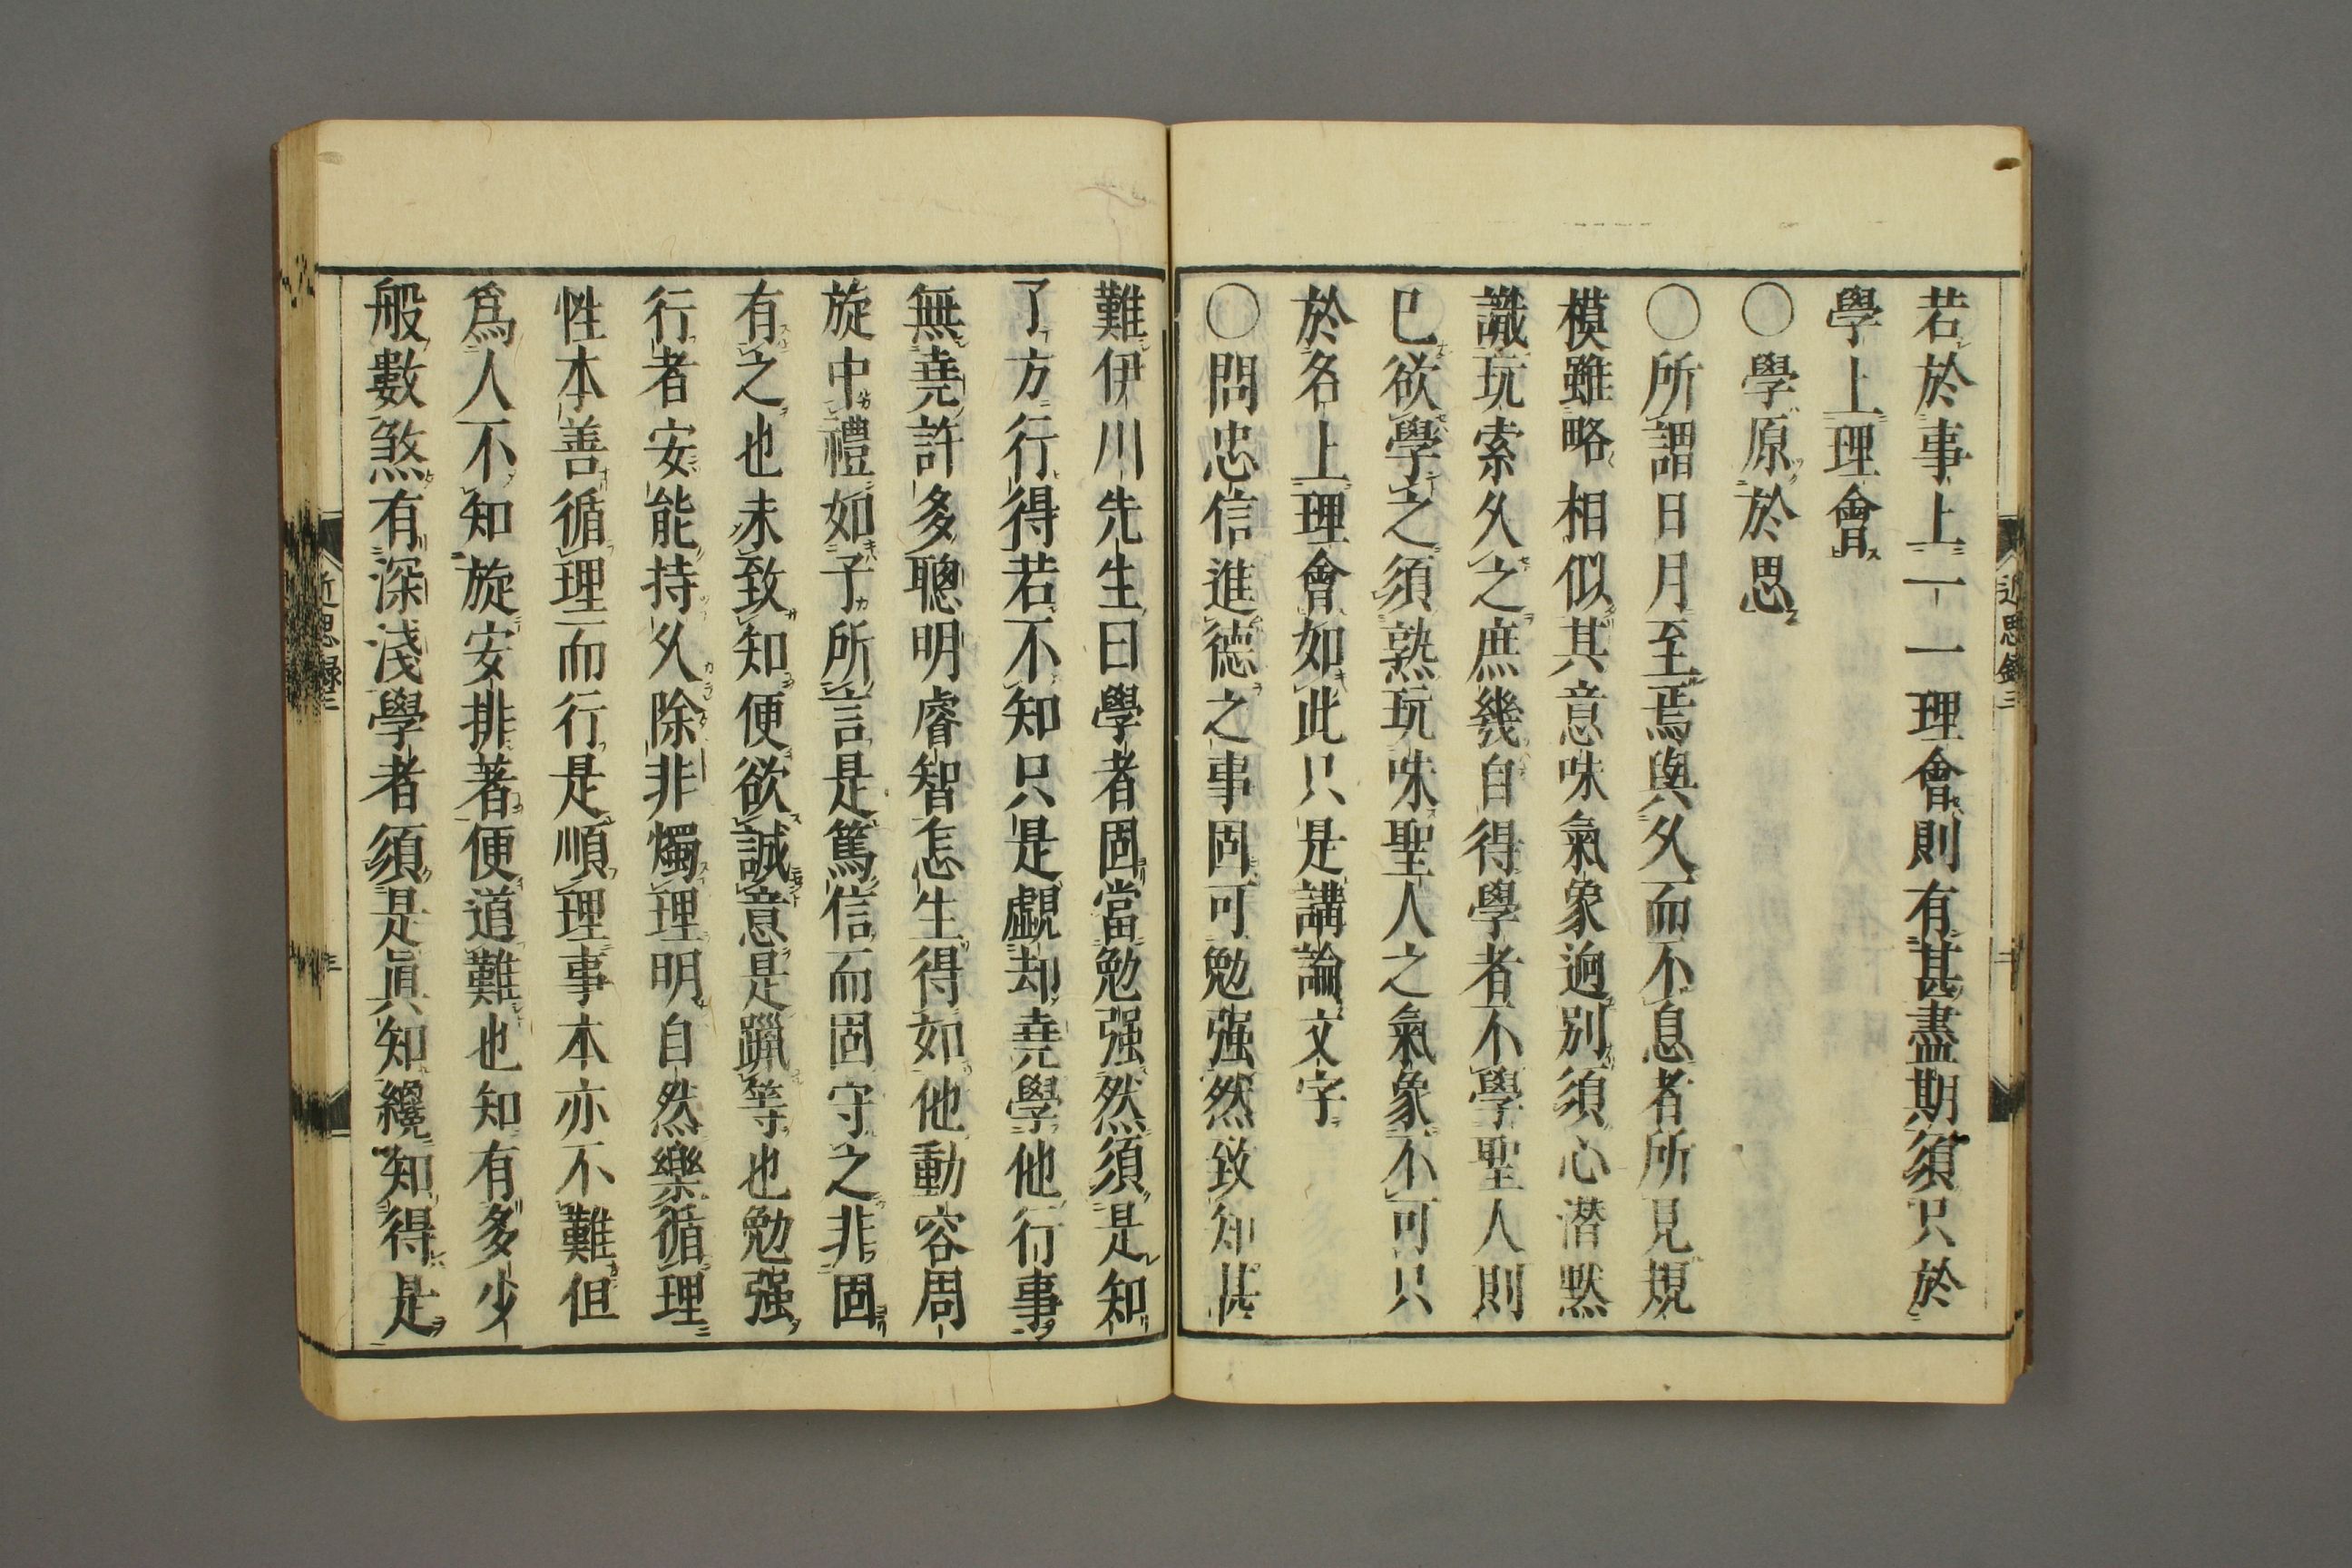 若於事上一一理會則有甚盡期須只於
學上理會
〇學原於思
〇所謂日月至焉與久而不息者所見規
模雖略相似其意味氣象逈別須心潜默
識玩索久之庶幾自得學者不學聖人則
已欲學之須熟玩味聖人之氣象不可只
於名上理會如此只是講論文字
〇問忠信進德之事固可勉强然致知甚
難伊川先生曰學者固當勉强然須是知
了方行得若不知只是覷却堯學他行事
無堯許多聰明睿智怎生得如他動容周
旋中禮如子所言是篤信而固守之非固
有之也未致知便欲誠意是躐等也勉强
行者安能持久除非燭理明自然樂循理
性本善循理而行是順理事本亦不難但
爲人不知旋安排著便道難也知有多少
般數煞有深淺學者須是眞知纔知得是
近思錄三
近思錄三